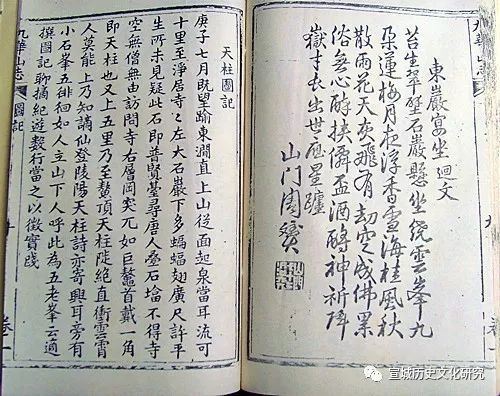 九華山志
卷一
東巖宴坐 迴文
苔生翠壁石巖懸坐繞雲峯九
朵蓮梅月夜浮香雪海桂風秋
散雨花天灰飛有劫空成佛累
俗無心醉挾儔盃酒酹神祈降
嶽 衣出世應星躔
山門周贇
天柱圖記
庚子七月旣望踰東澗直上山從面起泉當耳流可
十里至淨居寺〻左大石巖下多蝙蝠翅廣尺許平
生所未見疑此石即普賢臺尋唐人叠石墖不得寺
空無僧無由訪問寺右層岡突兀如巨鰲首戴一角
即天柱也又上五里乃至鰲頂天柱陡絶直衝雲霄
人莫能上乃知謫仙登陵陽天柱詩亦寄興耳旁有
小石峯五徘徊如人立山下人呼此為五老峯云適
撰圖記聊摘紀遊數行當之以徵實踐
九華山志
圖記
卷一
宣城历史文化研究